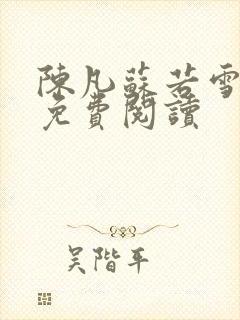 陳凡蘇若雪
免費閱讀
吴階平